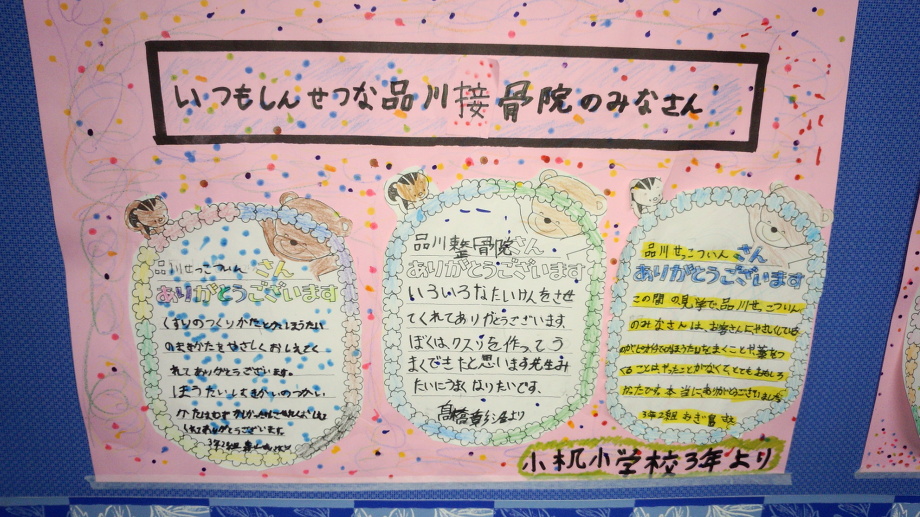 いつもしんせつな品川接骨院のみなさん
品川せっこついん さん
ありがとうございます
くすりのつくりかたとか、ほうたい
のまきかたをやさしくおしえてく
れてありがとうございます。
ほうたいしきかいのつかい
くれてありがとうございます。
3年2組
品川整骨院さん
ありがとうございます
いろいろなたいけんをさせ
てくれてありがとうございます。
ぼくは、クスリを作ってう
まくできたと思います先生み
たいにうまくなりたいです。
高橋 より
品川せっこついん さん
ありがとうございます
この間の見学で、品川せっこついん
のみなさんは、お客さんにやさしくて
ことはやったことがなくて、とてもおもしろ
かったです。本当にありがとうございました。
3年2組
小机小学校3年より